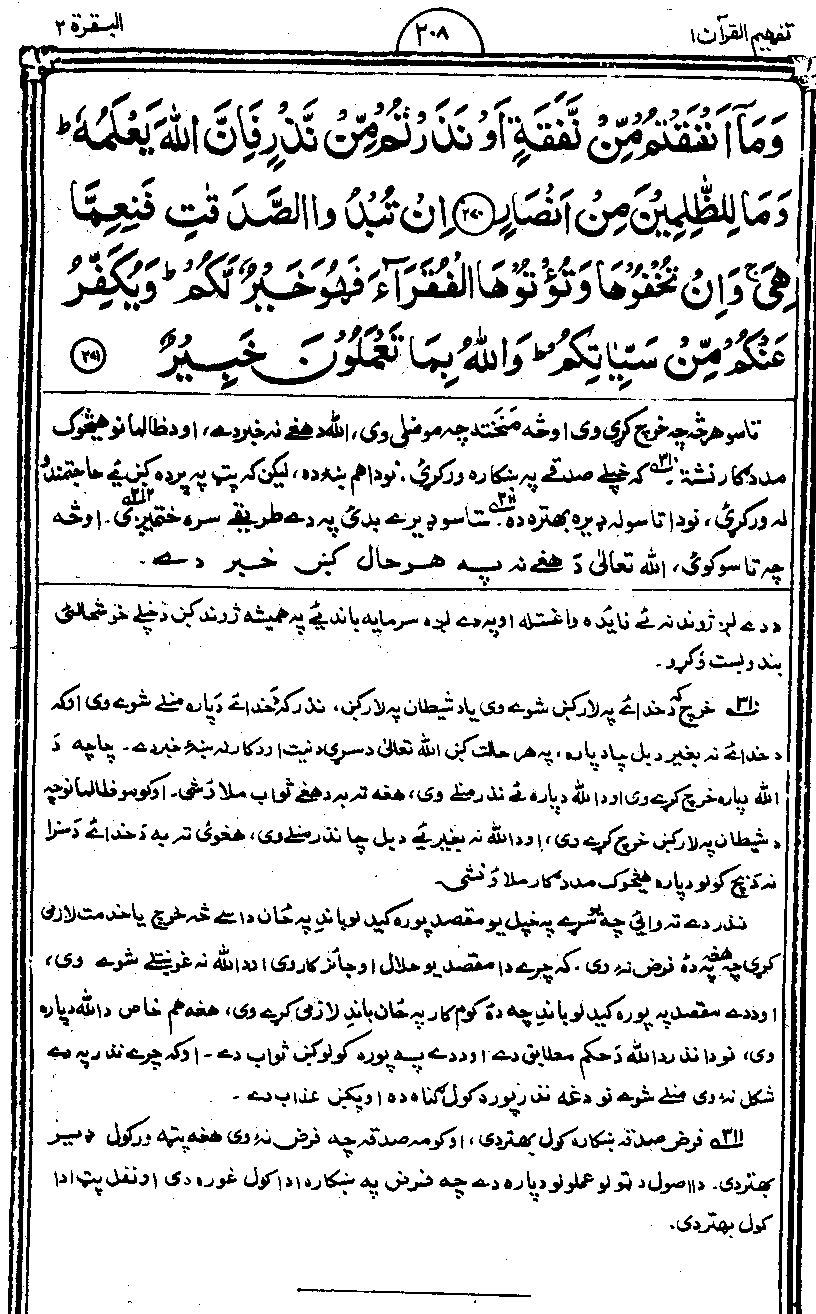 تفهيم القرآن ١
٢٠٨
البقرة ٢
وَمَآ اَنْفَقْتُمْ مِّنْ نَّفَقَةٍ اَوْ نَذَرْتُمْ مِّنْ نَّذْرٍ فَاِنَّ اللّٰهَ يَعْلَمُهٗ ؕ
وَمَا لِلظّٰلِمِيْنَ مِنْ اَنْصَارٍ ﴿٢٧٠﴾ اِنْ تُبْدُوا الصَّدَقٰتِ فَنِعِمَّا
هِيَ ۚ وَاِنْ تُخْفُوْهَا وَتُؤْتُوْهَا الْفُقَرَآءَ فَهُوَ خَيْرٌ لَّكُمْ ؕ وَيُكَفِّرُ
عَنْكُمْ مِّنْ سَيِّاٰتِكُمْ ؕ وَاللّٰهُ بِمَا تَعْمَلُوْنَ خَبِيْرٌ ﴿٢٧١﴾
تاسو هرڅه چه خرچ کړی وی اوڅه مَنختہ چه مو منلی وی، الله د هغے نه خبر دے، اود ظالمانو هیڅوک
مددګار نشتہ ۳۱۰ که خپلے صدقے په ښکاره ورکړئ. نو دا هم ښه ده، لیکن که پټ په پرده کښ ئے حاجتمندو
له ورکړئ، نو دا تاسو له ډیره بهتره ده ۳۱۱. ستاسو ډیرے بدئ په دے طریقے سره ختمیږی ۳۱۲. اوڅه
چه تاسو کوئ، الله تعالیٰ دَ هغے نه په هر حال کښ خبر دے.
د دے لږ ژوند نه ئے فائده واغستله او په دے لږه سرمایه باندیئے په همیشه ژوند کښ دَ خپلے خوشحالئ
بندوبست وکړو.
۳۱۰ خرچ که دَ خدائے په لار کښ شوے وی یا د شیطان په لار کښ، نذر که دَ خدائے دَپاره منلے شوے وی او که
د خدائے نه بغیر د بل چا دپاره، په هر حالت کښ الله تعالیٰ د سړی د نیت او د کار نه ښۀ خبر دے. چا چه دَ
الله دپاره خرچ کړے وی او د الله دپاره ئے نذر منلے وی، هغه ته به د هغے ثواب ملاؤشی. او کومو ظالمانو چه
د شیطان په لار کښ خرچ کړے وی، او د الله نه بغیر ئے د بل چا نذر منلے وی، هغوئ ته به دَ خدائے دَ سزا
نه د بچ کولو دپاره هیڅوک مددګار ملاؤ نشی.
نذر دے ته وائی چه سړے په خپل یو مقصد پوره کیدلو باندِ په ځان داسے څه خرچ یا خدمت لازمی
کړی چه هغه په دۀ فرض نۀ وی. که چرے دا مقصد یو حلال او جائز کار وی او د الله نه غوښتلے شوے وی،
او د دے مقصد په پوره کیدلو باندِ چه دۀ کوم کار په ځان باندِ لازمی کړے وی، هغه هم خاص د الله دپاره
وی، نو دا نذر د الله دَ حکم مطابق دے او د دے په پوره کولو کښ ثواب دے. او که چرے نذر په دے
شکل نۀ وی منلے شوے نو دغه نذر پوره کول ګناه ده او پکښ عذاب دے.
۳۱۱ فرض صدقه ښکاره کول بهتر دی، او کومه صدقه چه فرض نۀ وی هغه پټه ورکول ډیر
بهتر دی. دا اصول د ټولو عملونو دپاره دے چه فرض په ښکاره ادا کول غوره دی او نفل پټ ادا
کول بهتر دی.